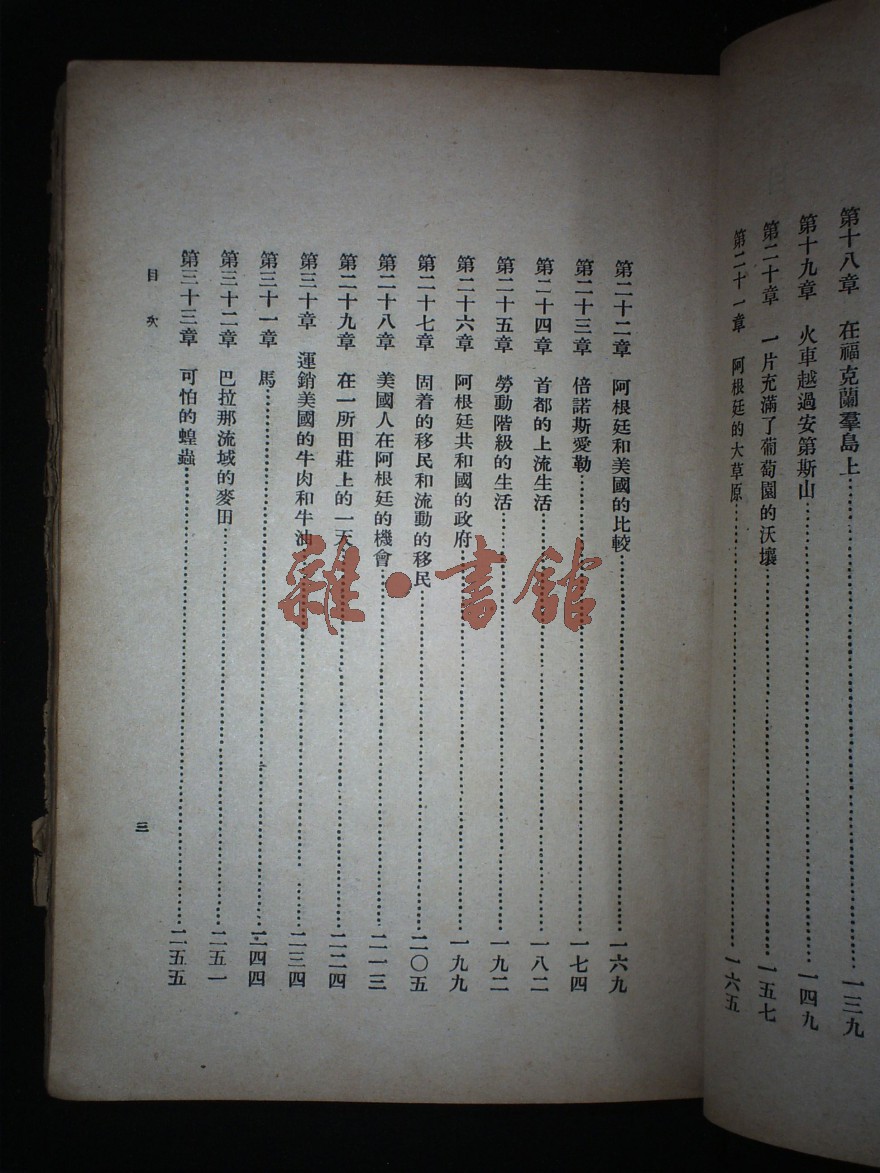 第十八章　在福克蘭羣島上……一三九
第十九章　火車越過安第斯山……一四九
第二十章　一片充滿了葡萄園的沃壤……一五七
第二十一章　阿根廷的大草原……一六五
第二十二章　阿根廷和美國的比較……一六九
第二十三章　倍諾斯愛勒……一七四
第二十四章　首都的上流生活……一八二
第二十五章　勞動階級的生活……一九二
第二十六章　阿根廷共和國的政府……一九九
第二十七章　固着的移民和流動的移民……二〇五
第二十八章　美國人在阿根廷的機會……二一三
第二十九章　在一所田莊上的一天……二二四
第三十章　運銷美國的牛肉和牛油……二三四
第三十一章　馬……二四四
第三十二章　巴拉那流域的麥田……二五一
第三十三章　可怕的蝗蟲……二五五
目次
三
雜·書館